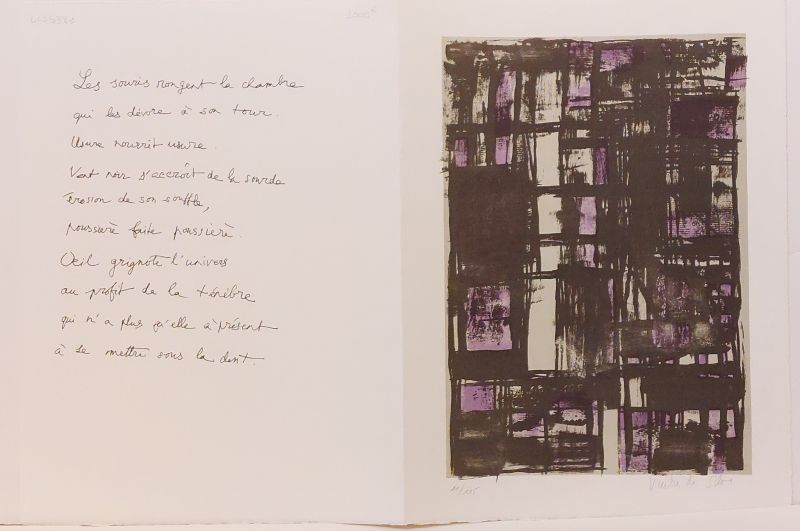 2000€
Les souris rongent la chambre
qui les dévore à son tour.
Usure nourrit usure.
Vent noir s'accroît de la sourde
érosion de son souffle,
poussière faite poussière.
Oeil grignote l'univers
au profit de la ténèbre
qui n'a plus qu'elle à présent
à se mettre sous la dent.
Vieira da Silva